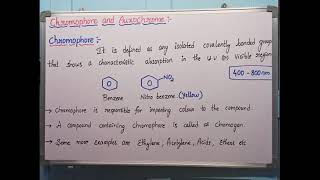 Chromophore and Auxochrome :-
Chromophore :-
It is defined as any isolated covalently bonded group
that shows a characteristic absorption in the u.v or visible region
400 - 800 nm
NO₂
Benzene Nitro benzene (Yellow)
→ Chromophore is responsible for imparting colour to the compound.
→ A compound containing chromophore is called as chromogen.
→ Some more examples are Ethylene, Acetylene, Acids, Esters etc